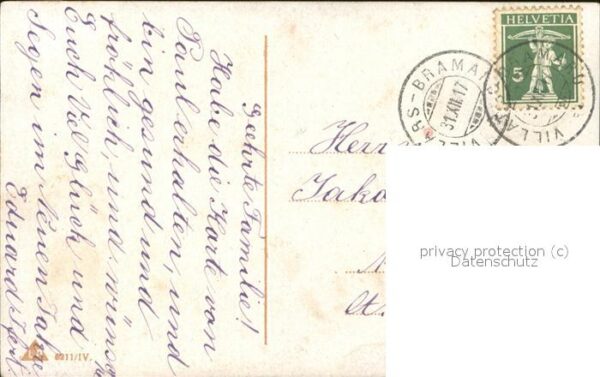 Geehrte Familie!
Habe die Karte von
Paul erhalten, und
bin gesund und
fröhlich, und wünsch
Euch Väl Glück und
Segen im neuen Jahr
Eduard
Herr
Jako
HELVETIA
5
VILLARS-BRAMA
31.XII.17
VILLA
6211/IV.
privacy protection (c)
Datenschutz